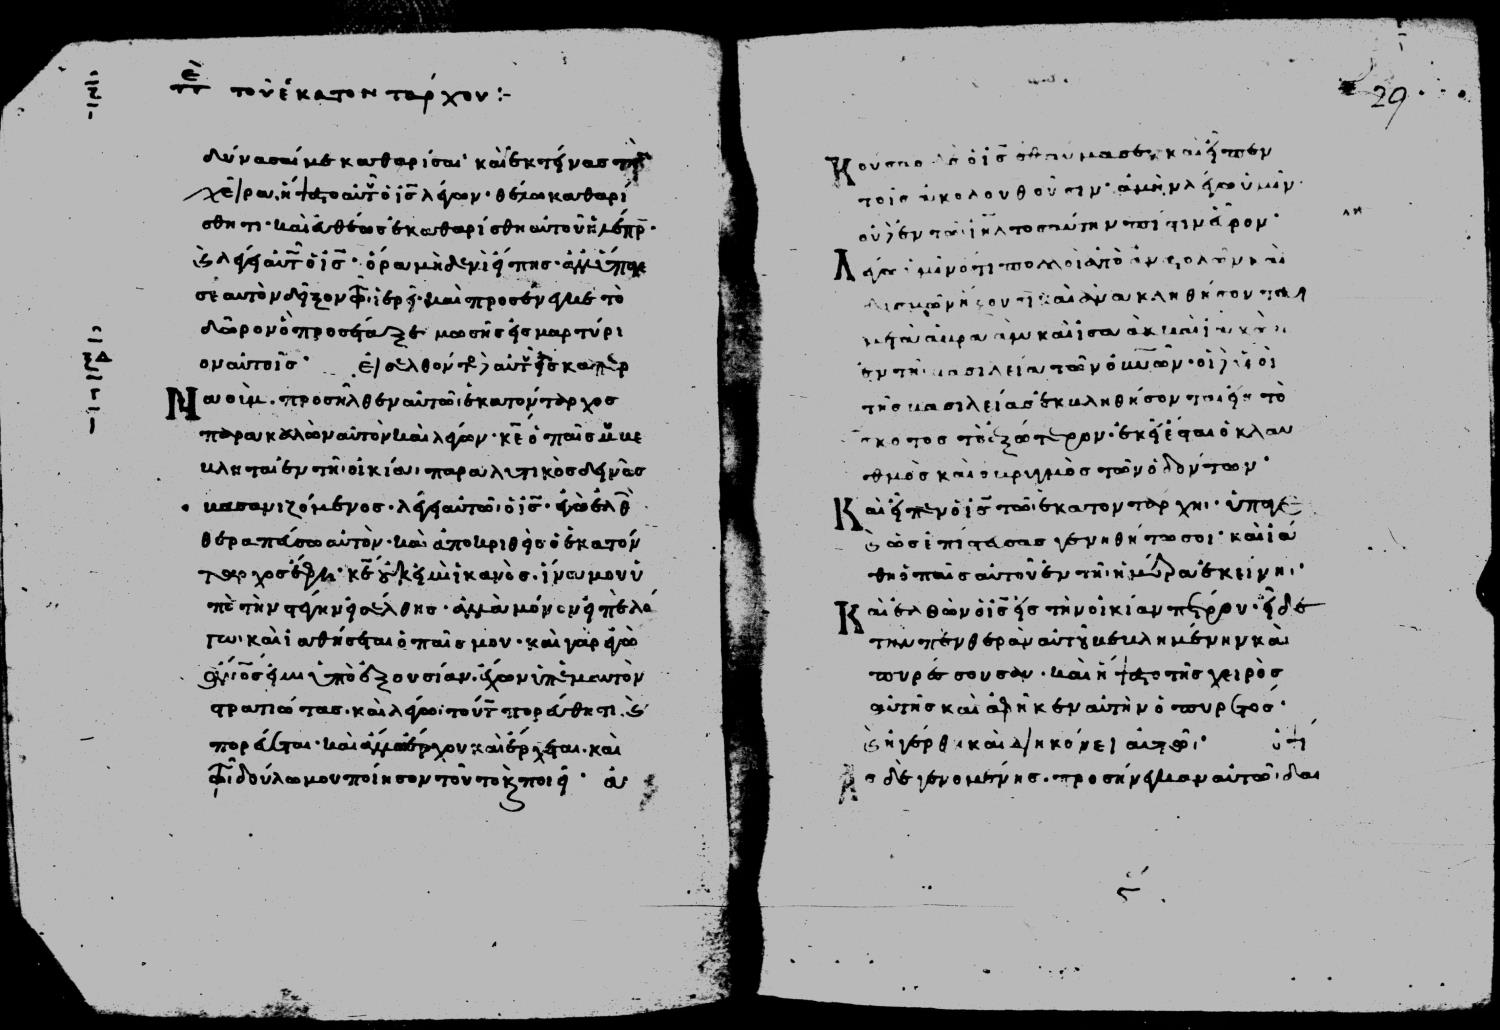 ε π τοῦ ἑκατοντάρχου :-
δύνασαί με καθαρίσαι· καὶ ἐκτείνας τὴν
χεῖρα, ἥψατο αὐτοῦ ὁ ις λέγων· θέλω καθαρί
σθητι· καὶ εὐθέως ἐκαθαρίσθη αὐτοῦ ἡ λέπρ·
καὶ λέγει αὐτῷ ὁ ις· ὅρα μηδενὶ εἴπης· ἀλλ' ὕπαγε
σεαυτὸν δεῖξον τῷ ἱερεῖ· καὶ προσένεγκε τὸ
δῶρον ὃ προσέταξε μωσῆς εἰς μαρτύρι
ον αὐτοῖς· εἰσελθόντι δὲ αὐτῷ εἰς καπερ
ναούμ. προσῆλθεν αὐτῶ ἑκατόνταρχος
παρακαλῶν αὐτὸν καὶ λέγων· κε ὁ παῖς μου βε
βληται ἐν τῆ οἰκία, παραλυτικὸς δεινῶς
βασανιζόμενος· λέγει αὐτῶ ὁ ις· ἐγὼ ἐλθ
θεραπεύσω αὐτὸν· καὶ ἀποκριθεὶς ὁ ἑκατόν
ταρχος ἔφη· κε οὐκ εἰμὶ ἱκανὸς. ἵνα μου ὑ
πὸ τὴν στέγην εἰσέλθης· ἀλλὰ μόνον εἰπὲ λό
γω· καὶ ἰαθήσεται ὁ παῖς μου· καὶ γὰρ ἐγὼ
ανος εἰμι ὑπὸ ἐξουσίαν. ἔχων ὑπ' ἐμαυτὸν
στρατιώτας. καὶ λέγω τούτ πορεύθητι. καὶ
πορεύεται· καὶ ἄλλω ἔρχου καὶ ἔρχεται. καὶ
τῷ δούλω μου ποίησον τοῦτο καὶ ποιεῖ· ἀ
29
κούσας δὲ ὁ ις ἐθαύμασεν, καὶ εἶπεν
τοῖς ἀκολουθοῦσιν· ἀμὴν λέγω ὑμῖν·
οὐδὲ ἐν τῶ ιηλ τοσαύτην πίστιν εὗρον·
Λέγω ὑμῖν ὅτι πολλοὶ ἀπὸ ἀνατολῶν καὶ
δυσμῶν ἥξουσι καὶ ἀνακληθήσονται
μετὰ ἀβραὰμ καὶ ἰσαὰκ καὶ ἰακὼβ
ἐν τῆ βασιλεία τῶν ουνων· οἱ δὲ υἱοὶ
τῆς βασιλείας ἐκβληθήσονται εἰς τὸ
σκότος τὸ ἐξώτερον. ἐκεῖ ἔσται ὁ κλαυ
θμὸς καὶ ὁ βρυγμὸς τῶν ὀδόντων·
Καὶ εἶπεν ὁ ις τῶ ἑκατοντάρχη· ὕπαγε
καὶ ὡς ἐπίστευσας γενηθήτω σοι· καὶ ἰά
θη ὁ παῖς αὐτοῦ ἐν τῆ ἡμέρα ἐκείνη·
Καὶ ἐλθὼν ὁ ις εἰς τὴν οἰκίαν πέτρου· εἶδε
τὴν πενθερὰν αὐτοῦ βεβλημένην καὶ
πυρέσσουσαν· καὶ ἥψατο τῆς χειρὸς
αὐτῆς καὶ ἀφῆκεν αὐτὴν ὁ πυρετός·
καὶ ἠγέρθη καὶ διηκόνει αὐτῶ·
ς δὲ γενομένης. προσήνεγκαν αὐτῶ δαι